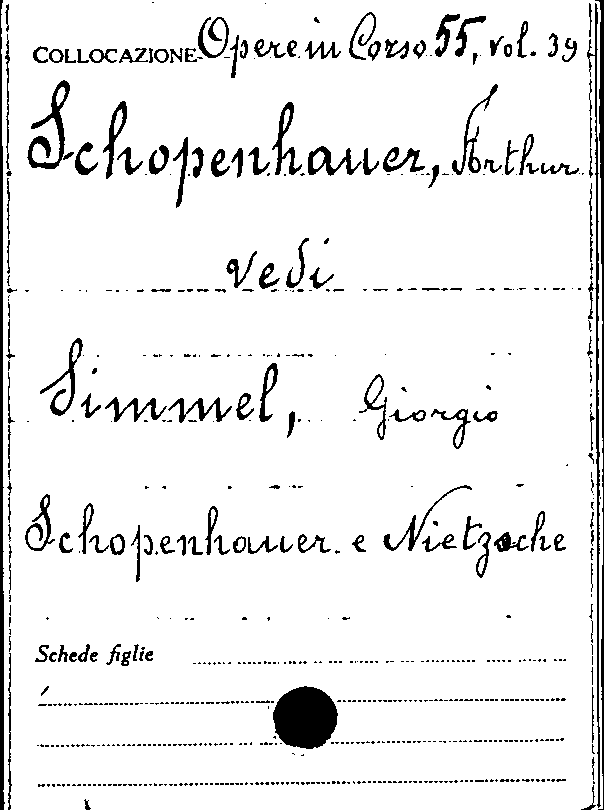 COLLOCAZIONE Opere in Corso 55, vol. 39
Schopenhauer, Arthur
vedi
Simmel, Giorgio
Schopenhauer e Nietzsche
Schede figlie